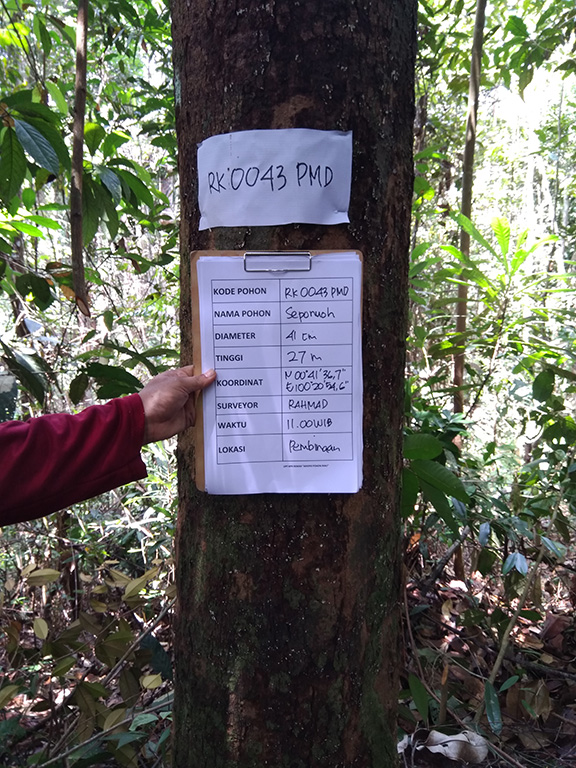 RK 0043 PMD
KODE POHON RK 0043 PMD
NAMA POHON Seporuoh
DIAMETER 41 cm
TINGGI 27 m
KOORDINAT N 00°41'36,7"
E 100°20'54,6"
SURVEYOR RAHMAD
WAKTU 11.00 WIB
LOKASI Pembinaan